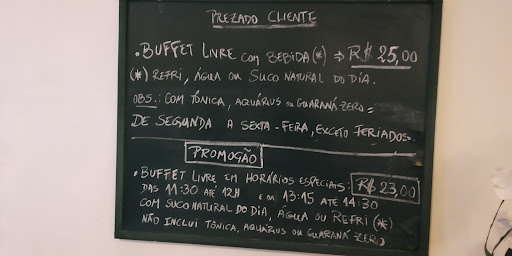 PREZADO CLIENTE
• BUFFET LIVRE COM BEBIDA (*) ⇒ R$ 25,00
(*) REFRI, ÁGUA OU SUCO NATURAL DO DIA.
OBS.: COM TÔNICA, AQUÁRIUS OU GUARANÁ ZERO =
DE SEGUNDA A SEXTA-FEIRA, EXCETO FERIADOS.
PROMOÇÃO
• BUFFET LIVRE EM HORÁRIOS ESPECIAIS: R$ 23,00
DAS 11:30 ATÉ 12H E DAS 13:15 ATÉ 14:30
COM SUCO NATURAL DO DIA, ÁGUA OU REFRI (*)
NÃO INCLUI TÔNICA, AQUÁRIUS OU GUARANÁ ZERO